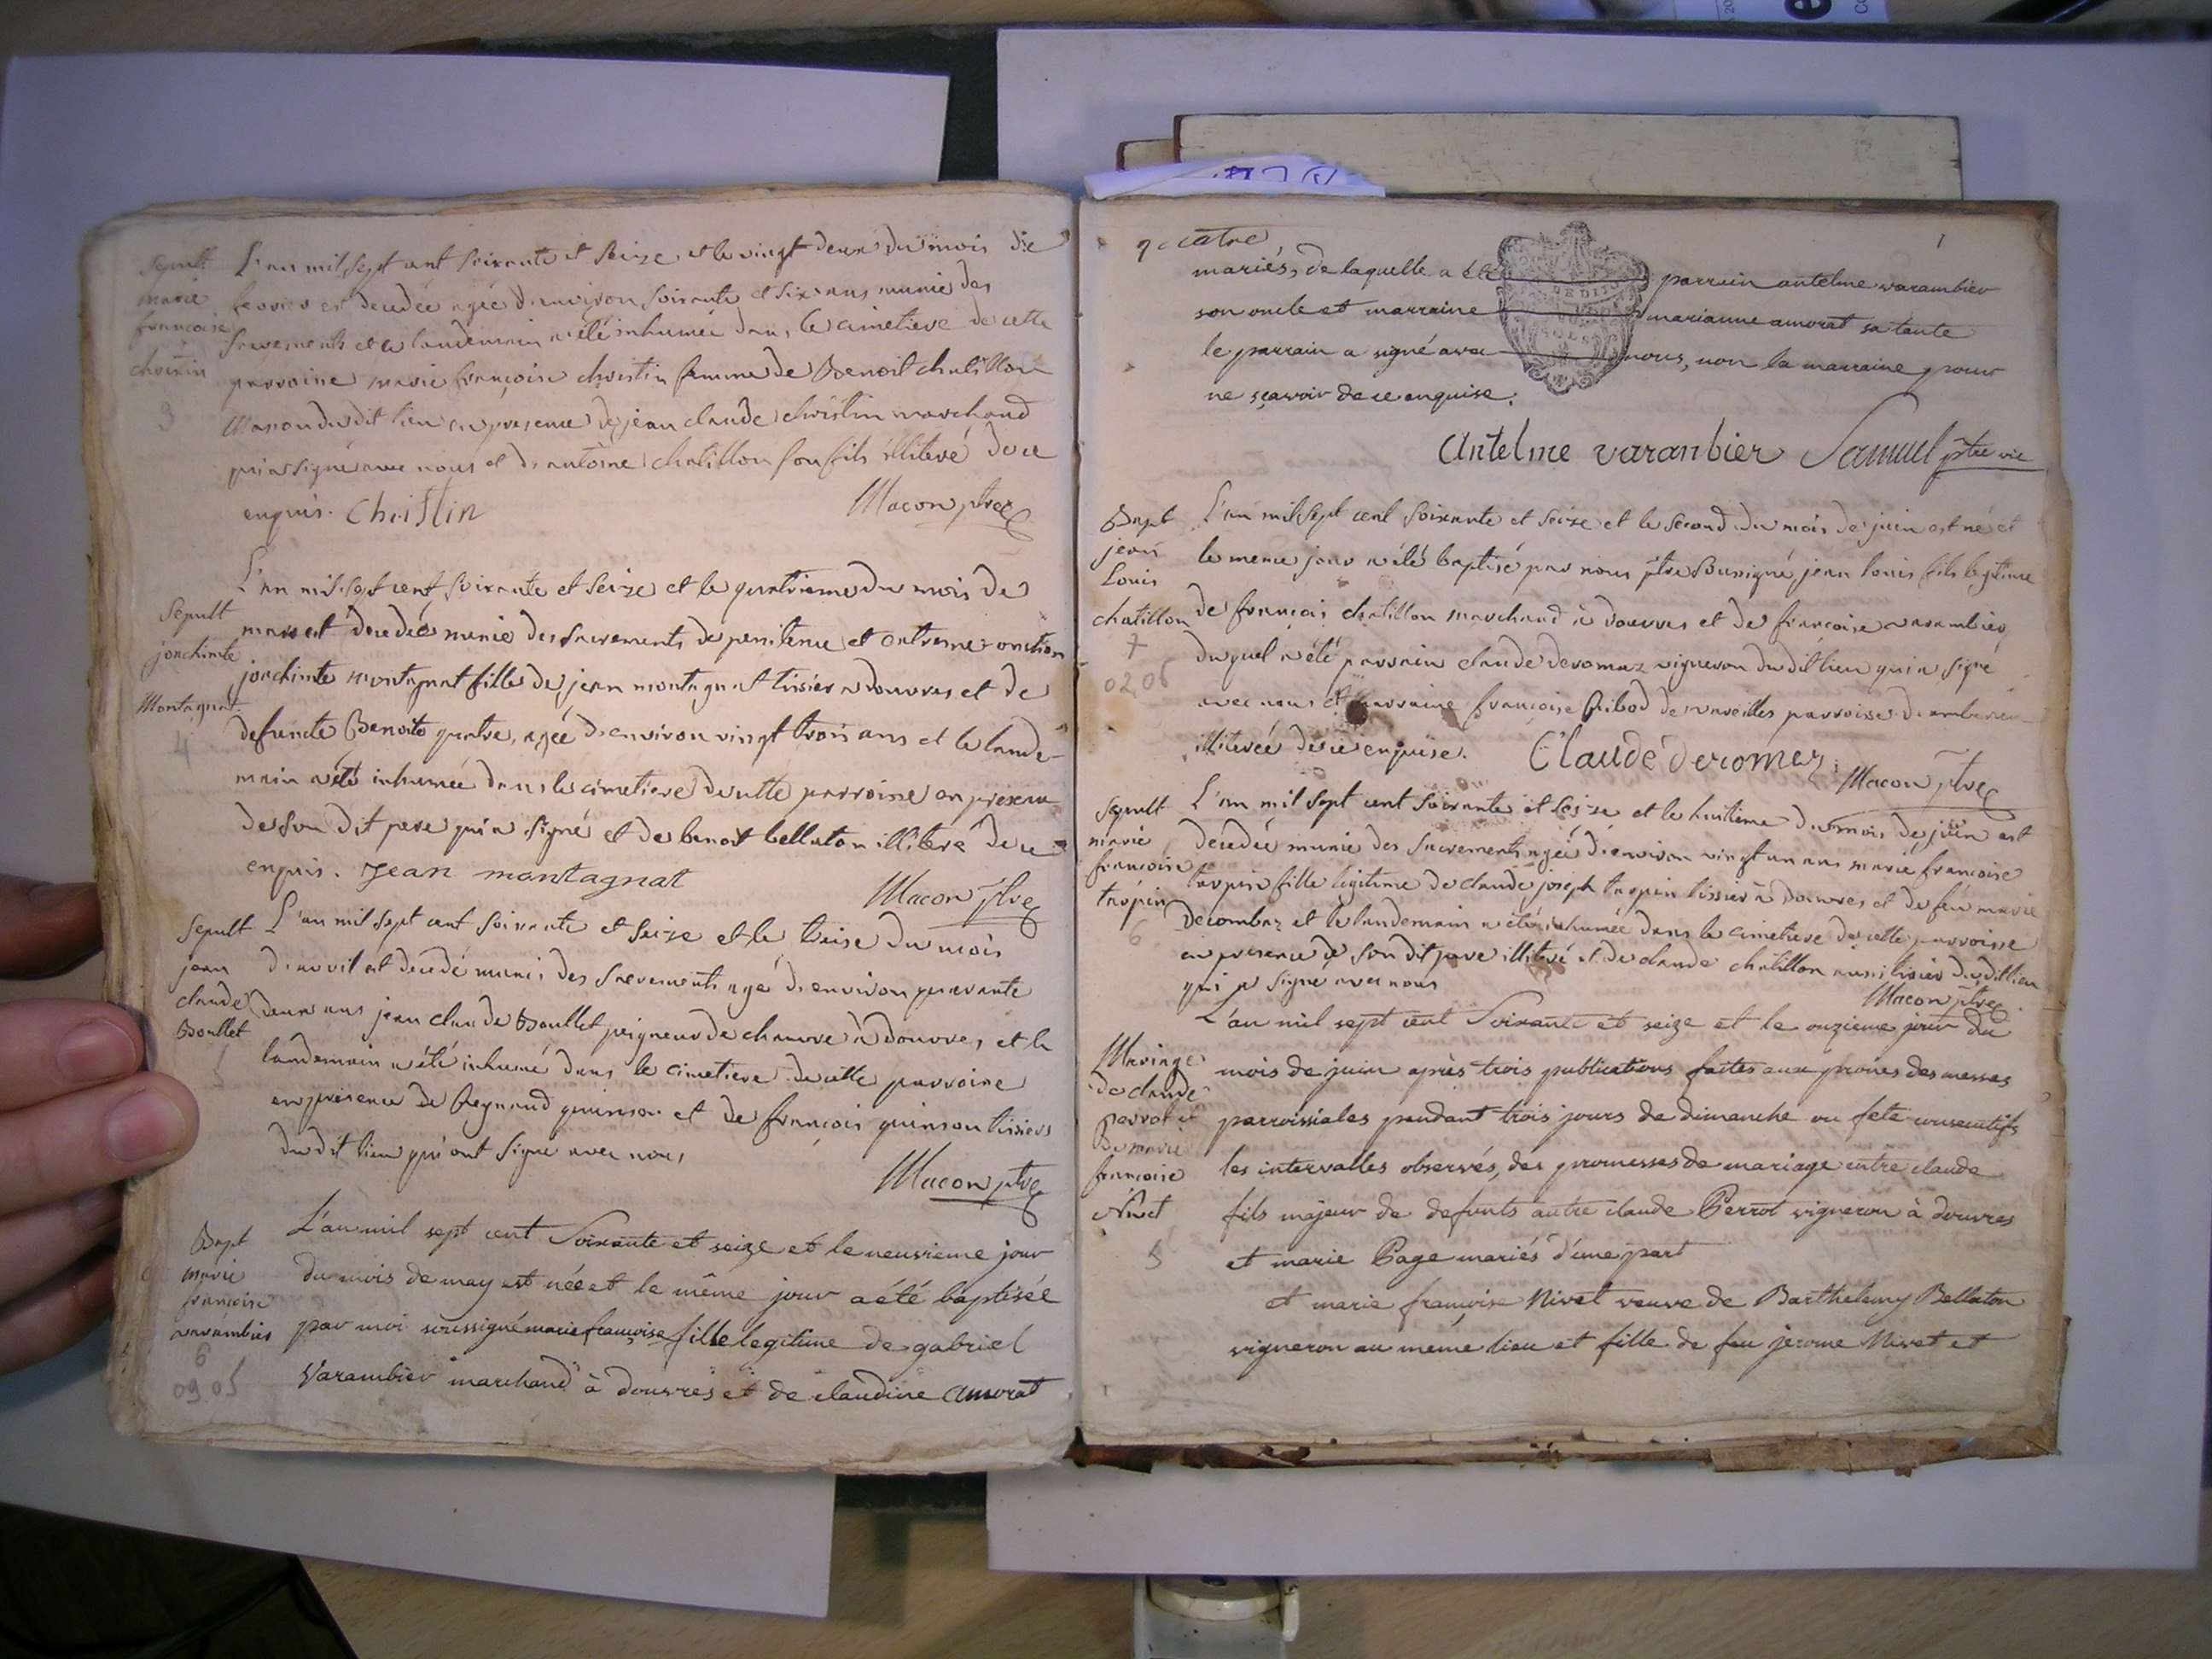 Sepult
marie
françoise
christin
3
L'an mil sept cent soixante et seize et le vingt deux du mois de
fevrier est decedée agée d'environ soixante et six ans munie des
sacrements et le landemain a été inhumée dans le cimetiere de cette
parroisse marie françoise christin femme de Benoit chatillon
Masson du dit lieu en presence de jean claude christin marchand
qui a signé avec nous et d'antoine chatillon son fils illiteré de ce
enquis. Christin Macon ptre
Sepult
joachimte
Montagnat
4
L'an mil sept cent soixante et seize et le quatrieme du mois de
mars est decedée munie des sacrements de penitence et extreme-onction
joachimte montagnat fille de jean montagnat tissier a douvres et de
defuncte Benoite quatre, agée d'environ vingt trois ans et le lande-
main a été inhumée dans le cimetiere de cette parroisse en presence
de son dit pere qui a signé et de benoit bellaton illiteré de ce
enquis. Jean montagnat Macon ptre
Sepult
jean
claude
Boullet
5
L'an mil sept cent soixante et seize et le treise du mois
d'avril est decedé muni des sacrements agé d'environ quarante
deux ans jean claude Boullet peigneur de chanvre a douvres, et le
landemain a été inhumé dans le cimetiere de cette parroisse
en presence de Reynaud quinson et de françois quinson tissiers
du dit lieu qui ont signé avec nous
Macon ptre
Bapt
marie
françoise
varambier
6
09.05
L'an mil sept cent Soixante et seize et le neuvieme jour
du mois de may est née et le même jour a été baptisée
par moi soussigné marie françoise fille legitime de gabriel
Varambier marchand à douvres et de claudine amorat
quatre
mariés, de laquelle a été parrain antelme varambier
son oncle et marraine marianne amorat sa tante
le parrain a signé avec nous, non la marraine pour
ne sçavoir de ce enquise.
Antelme varanbier Samuel ptre vic
Bapt
jean
Louis
chatillon
7
02.06
L'an mil sept cent soixante et seize et le second du mois de juin est né et
le meme jour a été baptisé par nous ptre soussigné jean louis fils legitime
de françois chatillon marchand à douvres et de françoise varambier
du quel a été parrain claude deromaz vigneron du dit lieu qui a signé
avec nous et marraine françoise Ribod de vareilles parroisse
illiterée de ce enquise. Claude deromaz
Macon ptre
Sepult
marie
françoise
tropin
6
L'an mil sept cent soixante et seize et le huitieme du mois de juin est
decedée munie des sacrements agée d'environ vingt un ans marie françoise
tropin fille legitime de claude joseph tropin tissier à douvres et de feu marie
Decombaz et le landemain a été inhumée dans le cimetiere de cette parroisse
en presence de son dit pere illiteré et de claude chatillon aussi tissier du dit lieu
qui a signé avec nous Macon ptre
Mariage
de claude
perrot et
de marie
françoise
Nivet
5
L'an mil sept cent Soixante et seize et le onzieme jour du
mois de juin après trois publications faites aux prônes des messes
parroissiales pendant trois jours de dimanche ou fete consecutifs
les intervalles observés, des promesses de mariage entre claude
fils majeur de defunts autre claude Perrot vigneron à douvres
et marie Page mariés d'une part
et marie françoise Nivet veuve de Barthelemy Bellaton
vigneron au même lieu et fille de feu jerome Nivet et